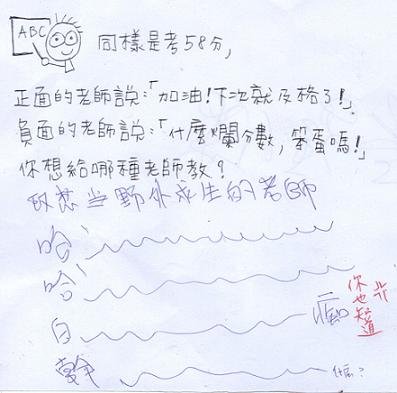 ABC
同樣是考58分,
正面的老師說:「加油!下次就及格了!」
負面的老師說:「什麼爛分數,笨蛋嗎!」
你想給哪種老師教?
我想当野外求生的老師
哈
哈
白 痴
你也知道
什么?